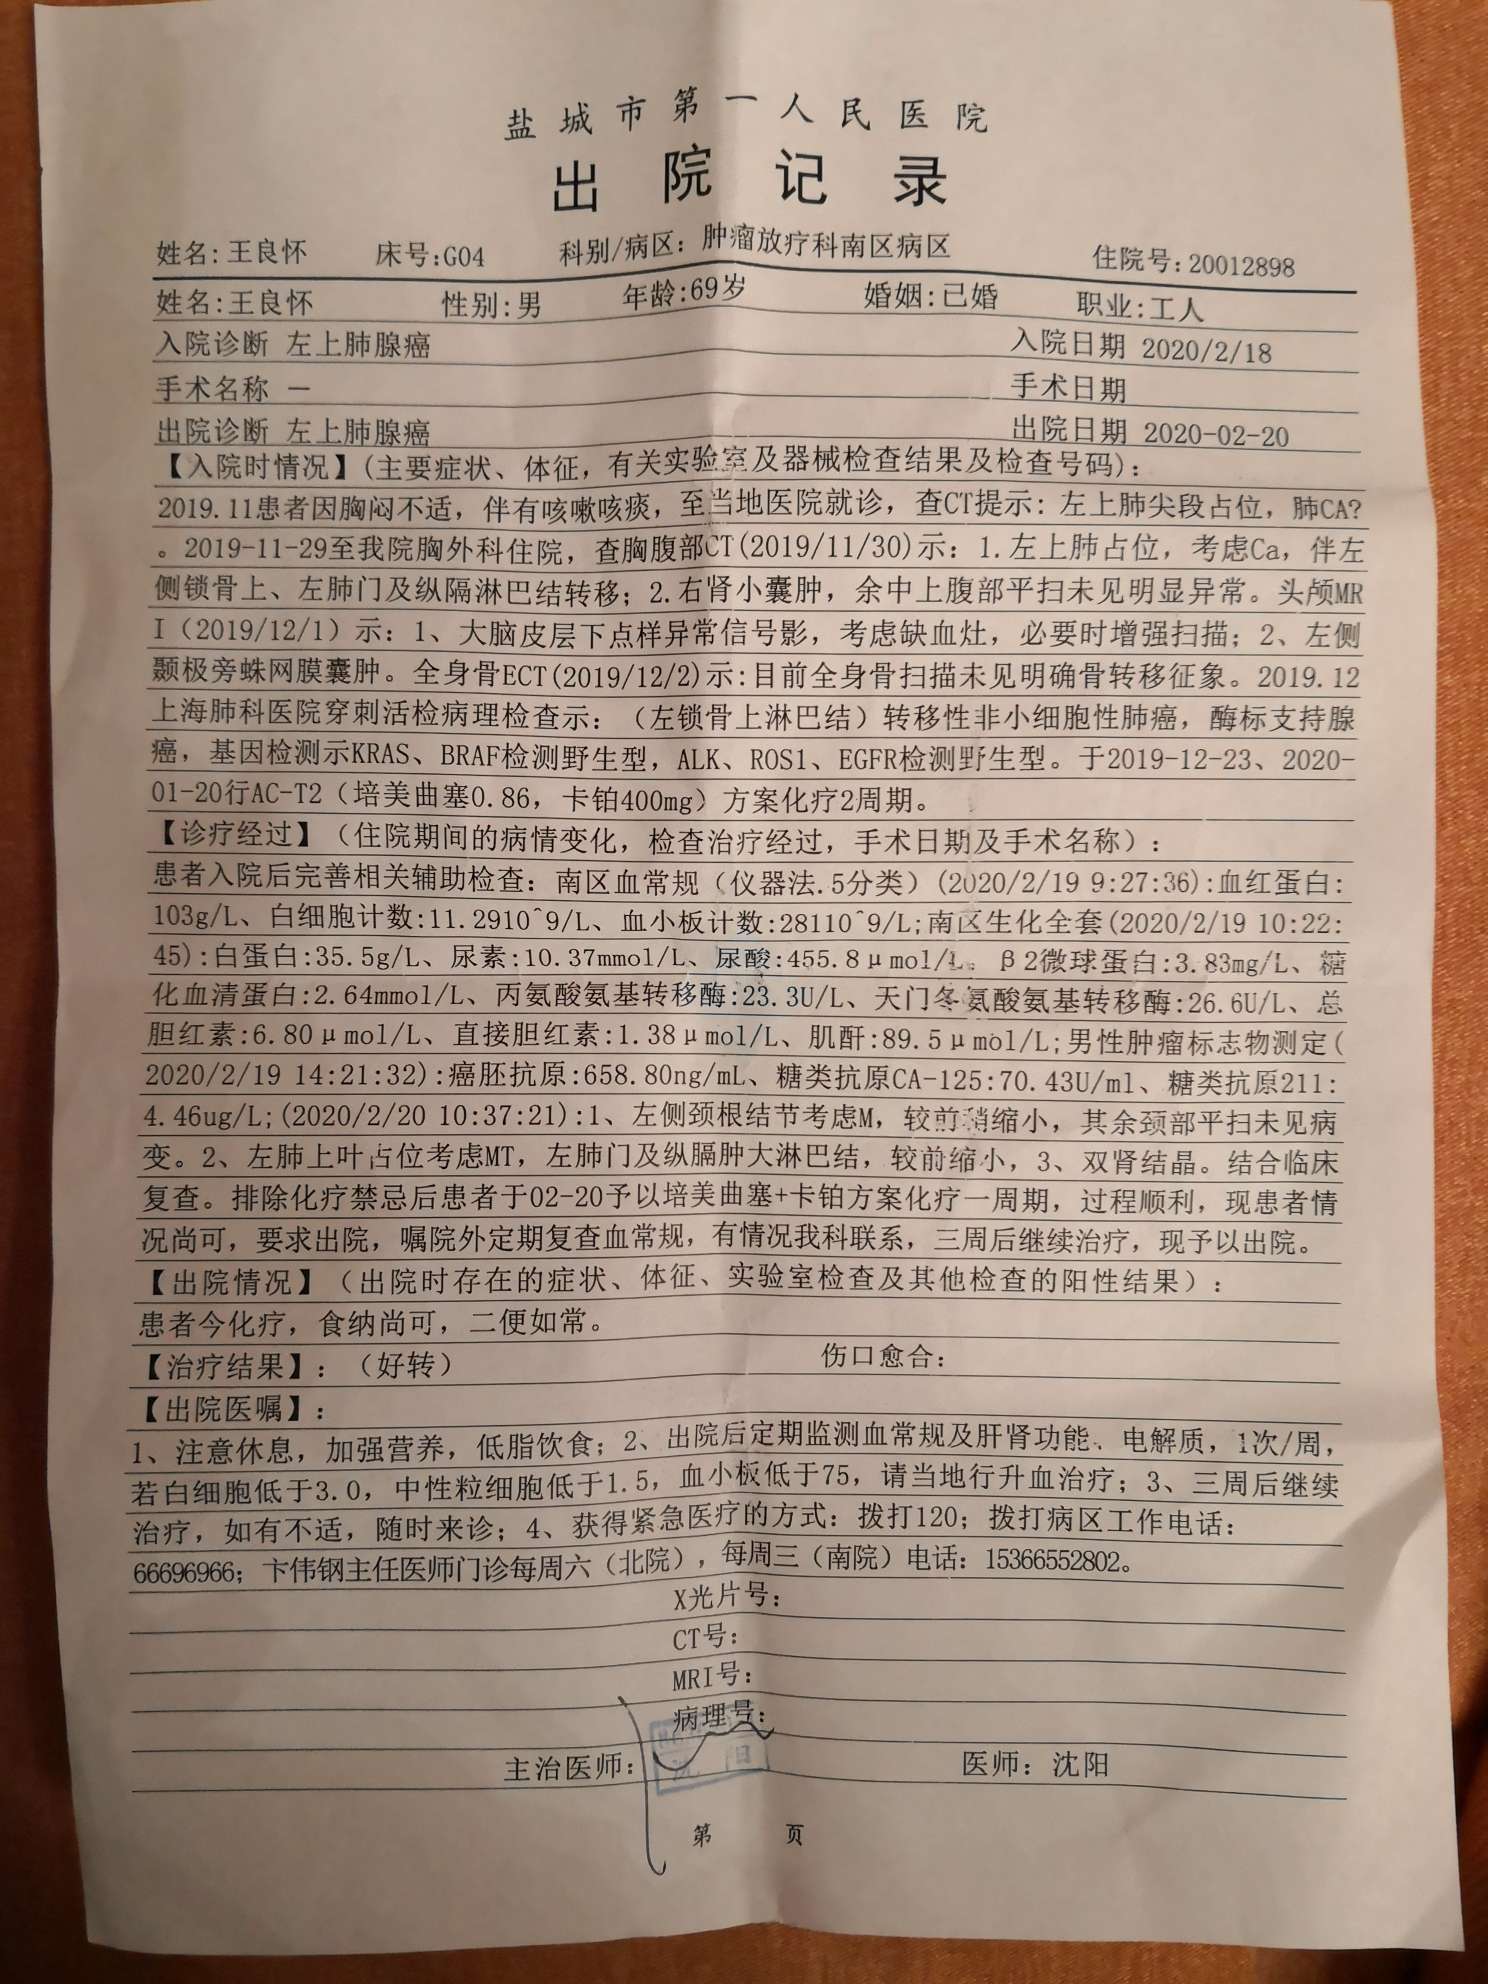 盐城市第一人民医院
出院记录
姓名:王良怀 床号:G04 科别/病区：肿瘤放疗科南区病区 住院号:20012898
姓名:王良怀 性别:男 年龄:69岁 婚姻:已婚 职业:工人
入院诊断 左上肺腺癌 入院日期 2020/2/18
手术名称 — 手术日期
出院诊断 左上肺腺癌 出院日期 2020-02-20
【入院时情况】(主要症状、体征，有关实验室及器械检查结果及检查号码)：
2019.11患者因胸闷不适，伴有咳嗽咳痰，至当地医院就诊，查CT提示：左上肺尖段占位，肺CA?
。2019-11-29至我院胸外科住院，查胸腹部CT(2019/11/30)示：1.左上肺占位，考虑Ca，伴左
侧锁骨上、左肺门及纵隔淋巴结转移；2.右肾小囊肿，余中上腹部平扫未见明显异常。头颅MR
I（2019/12/1）示：1、大脑皮层下点样异常信号影，考虑缺血灶，必要时增强扫描；2、左侧
颞极旁蛛网膜囊肿。全身骨ECT(2019/12/2)示:目前全身骨扫描未见明确骨转移征象。2019.12
上海肺科医院穿刺活检病理检查示：（左锁骨上淋巴结）转移性非小细胞性肺癌，酶标支持腺
癌，基因检测示KRAS、BRAF检测野生型，ALK、ROS1、EGFR检测野生型。于2019-12-23、2020-
01-20行AC-T2（培美曲塞0.86，卡铂400mg）方案化疗2周期。
【诊疗经过】（住院期间的病情变化，检查治疗经过，手术日期及手术名称）：
患者入院后完善相关辅助检查：南区血常规（仪器法.5分类）(2020/2/19 9:27:36):血红蛋白:
103g/L、白细胞计数:11.2910^9/L、血小板计数:28110^9/L;南区生化全套(2020/2/19 10:22:
45):白蛋白:35.5g/L、尿素:10.37mmol/L、尿酸:455.8μmol/L、β2微球蛋白:3.83mg/L、糖
化血清蛋白:2.64mmol/L、丙氨酸氨基转移酶:23.3U/L、天门冬氨酸氨基转移酶:26.6U/L、总
胆红素:6.80μmol/L、直接胆红素:1.38μmol/L、肌酐:89.5μmol/L;男性肿瘤标志物测定(
2020/2/19 14:21:32):癌胚抗原:658.80ng/mL、糖类抗原CA-125:70.43U/ml、糖类抗原211:
4.46ug/L;(2020/2/20 10:37:21):1、左侧颈根结节考虑M，较前稍缩小，其余颈部平扫未见病
变。2、左肺上叶占位考虑MT，左肺门及纵膈肿大淋巴结，较前缩小，3、双肾结晶。结合临床
复查。排除化疗禁忌后患者于02-20予以培美曲塞+卡铂方案化疗一周期，过程顺利，现患者情
况尚可，要求出院，嘱院外定期复查血常规，有情况我科联系，三周后继续治疗，现予以出院。
【出院情况】（出院时存在的症状、体征、实验室检查及其他检查的阳性结果）：
患者今化疗，食纳尚可，二便如常。
【治疗结果】：（好转） 伤口愈合：
【出院医嘱】：
1、注意休息，加强营养，低脂饮食；2、出院后定期监测血常规及肝肾功能、电解质，1次/周，
若白细胞低于3.0，中性粒细胞低于1.5，血小板低于75，请当地行升血治疗；3、三周后继续
治疗，如有不适，随时来诊；4、获得紧急医疗的方式：拨打120；拨打病区工作电话：
66696966；卞伟钢主任医师门诊每周六（北院），每周三（南院）电话：15366552802。
X光片号：
CT号：
MRI号：
病理号：
主治医师： 医师：沈阳
第 页